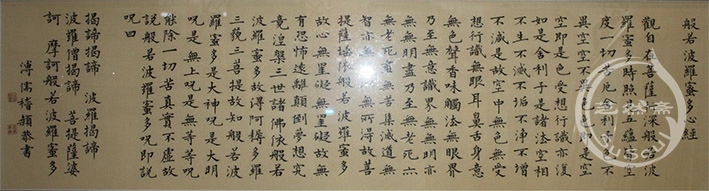 般若波羅蜜多心經
觀自在菩薩行深般若波
羅蜜多時照見五蘊皆空
度一切苦厄舍利子色不
異空空不異色色即是空
空即是色受想行識亦復
如是舍利子是諸法空相
不生不滅不垢不淨不增
不減是故空中無色無受
想行識無眼耳鼻舌身意
無色聲香味觸法無眼界
乃至無意識界無無明亦
無無明盡乃至無老死亦
無老死盡無苦集滅道無
智亦無得以無所得故菩
提薩埵依般若波羅蜜多
故心無罣礙無罣礙故無
有恐怖遠離顛倒夢想究
竟涅槃三世諸佛依般若
波羅蜜多故得阿耨多羅
三藐三菩提故知般若波
羅蜜多是大神呪是大明
呪是無上呪是無等等呪
能除一切苦真實不虛故
說般若波羅蜜多呪即說
呪曰
揭諦揭諦 波羅揭諦
波羅僧揭諦 菩提薩婆
訶 摩訶般若波羅蜜多
溥儒稽顙恭書